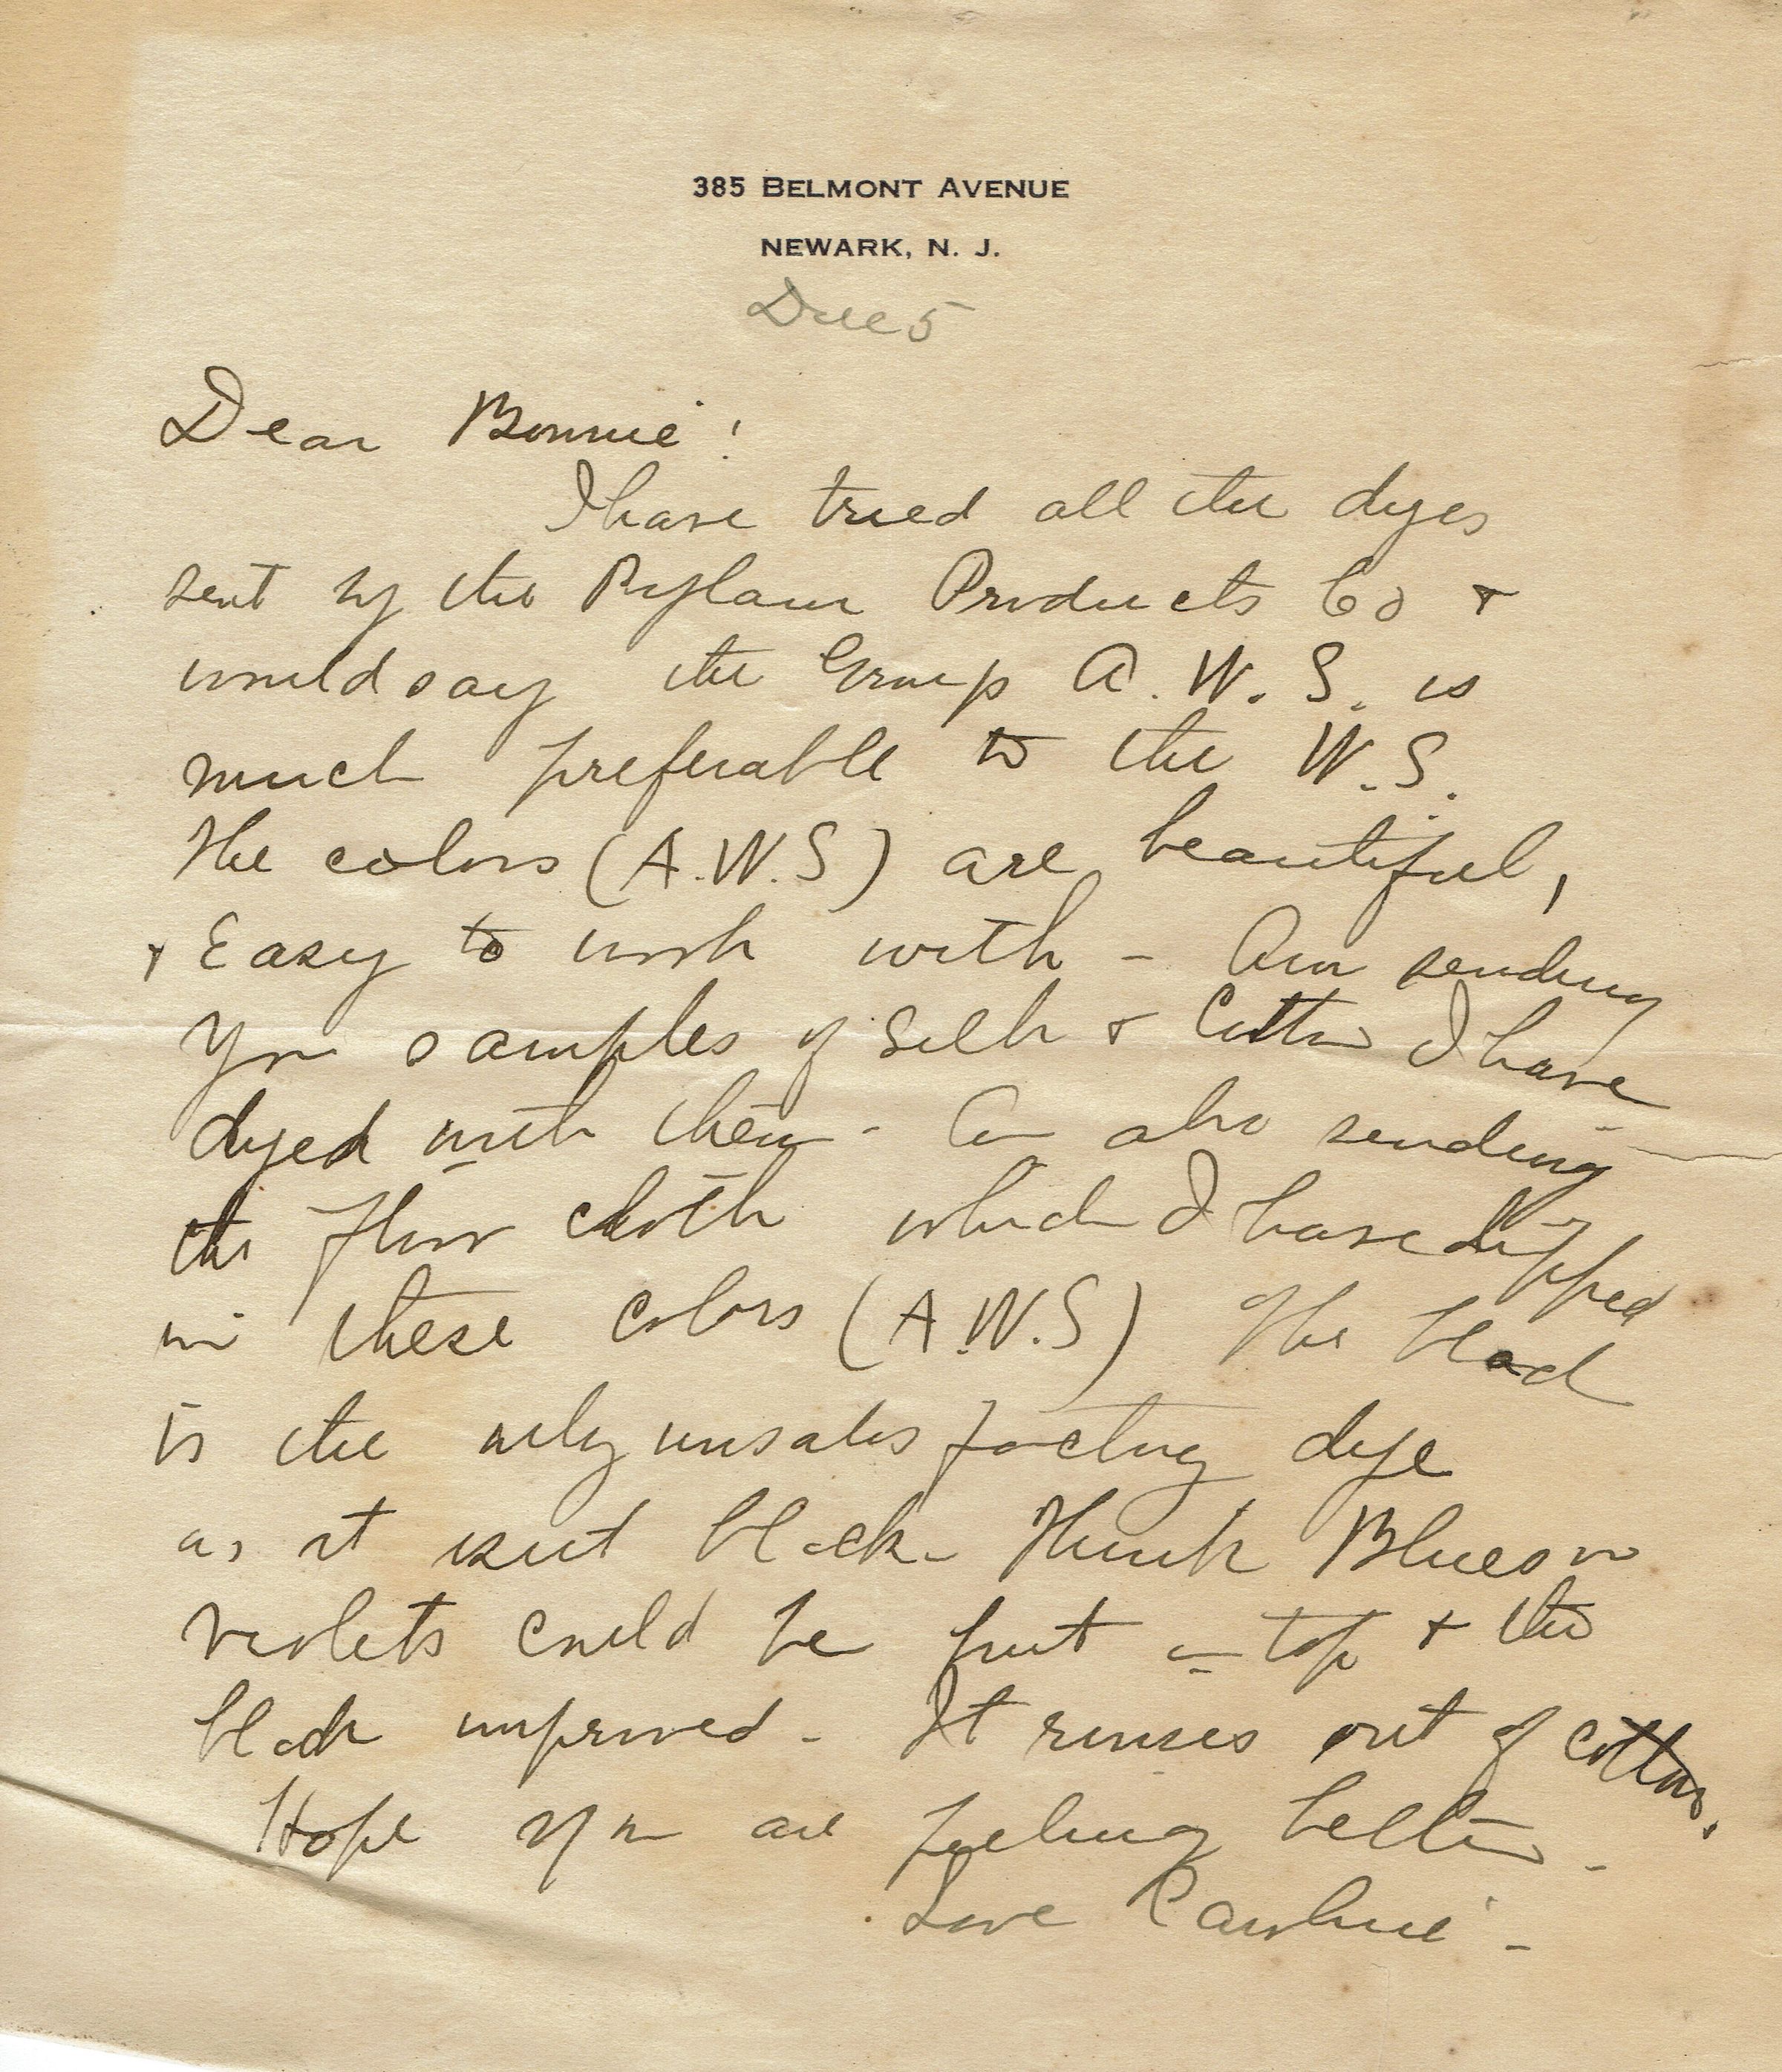 385 BELMONT AVENUE
NEWARK, N. J.
Dear Bonnie!
I have tried all the dyes
sent by the Pylam Products Co +
would say the Group A. W. S. is
much preferable to the W.S.
The colors (A.W.S) are beautiful,
+ Easy to work with - Am sending
you samples of Silk + Cotton I have
dyed with them - Am also sending
the floor cloth which I have dipped
in these colors (A.W.S) The black
is the only unsatisfactory dye
as it isnt black - Think Blues or
violets could be put on top + the
black improved - It rinses out of cotton.
Hope you are feeling better -
Love Caroline -